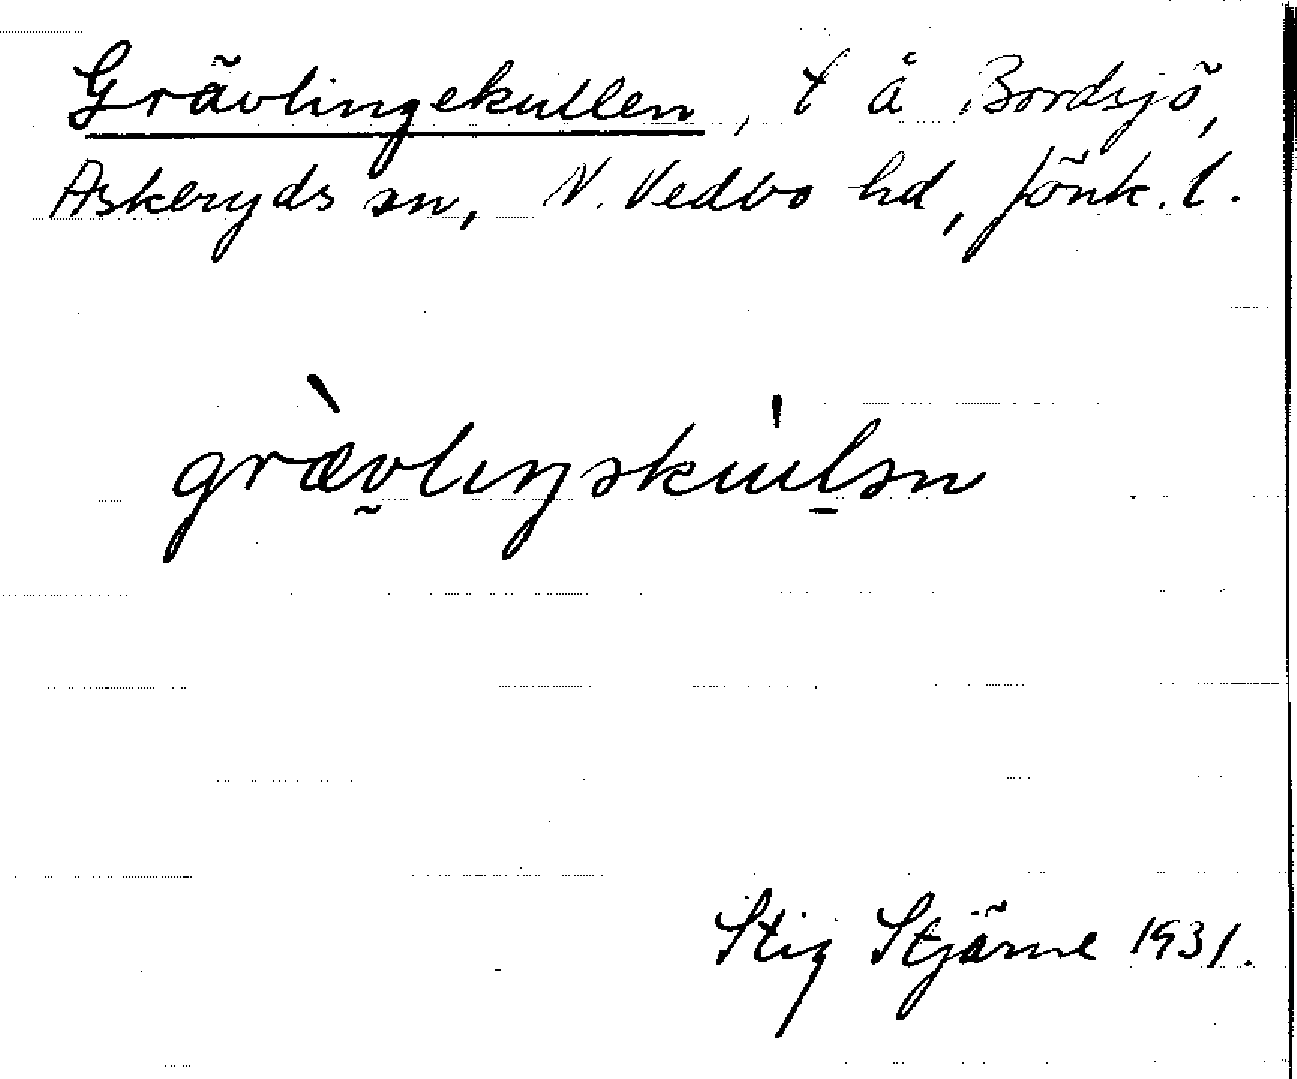 Grävlingekullen, t å Bordsjö,
Askeryds sn, N. Vedbo hd, Jönk. l.
græ̀vlıŋəkuḷ̍ən
Stig Stjärne 1931.